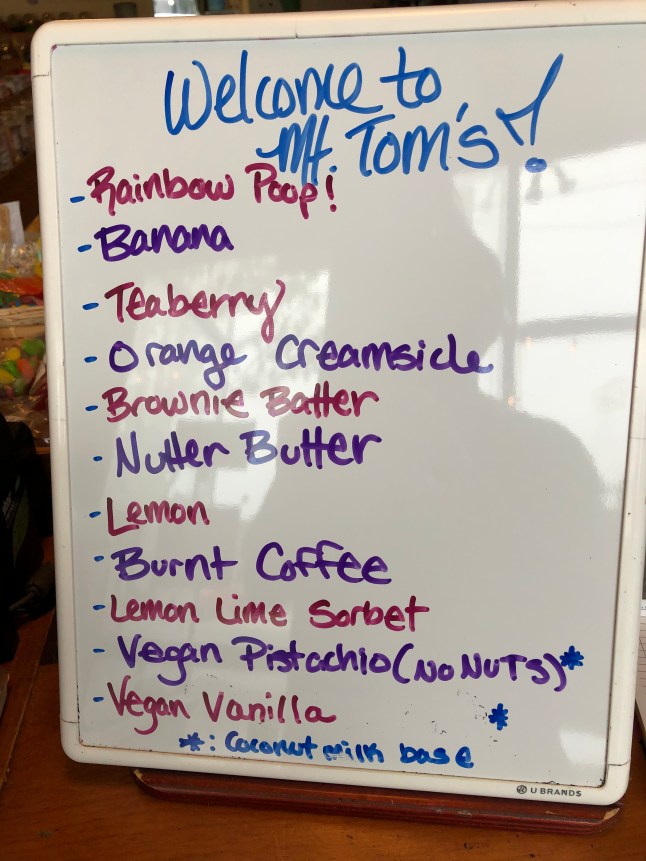 Welcome to
Mt. Tom's!
- Rainbow Poop!
- Banana
- Teaberry
- Orange Creamsicle
- Brownie Batter
- Nutter Butter
- Lemon
- Burnt Coffee
- Lemon Lime Sorbet
- Vegan Pistachio (No NUTS)*
- Vegan Vanilla *
*: Coconut milk base
U BRANDS